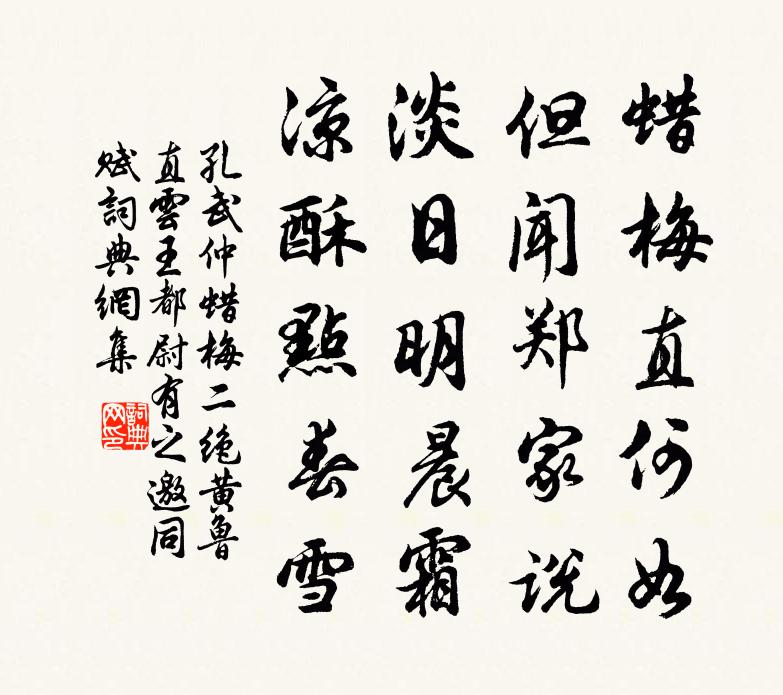 蜡梅直何如
但闻郑家说
淡日明晨霜
凉酥點春雪
孔武仲蜡梅二绝黄鲁
直雲王都尉有之邀同
赋詞典網集
詞典
网印